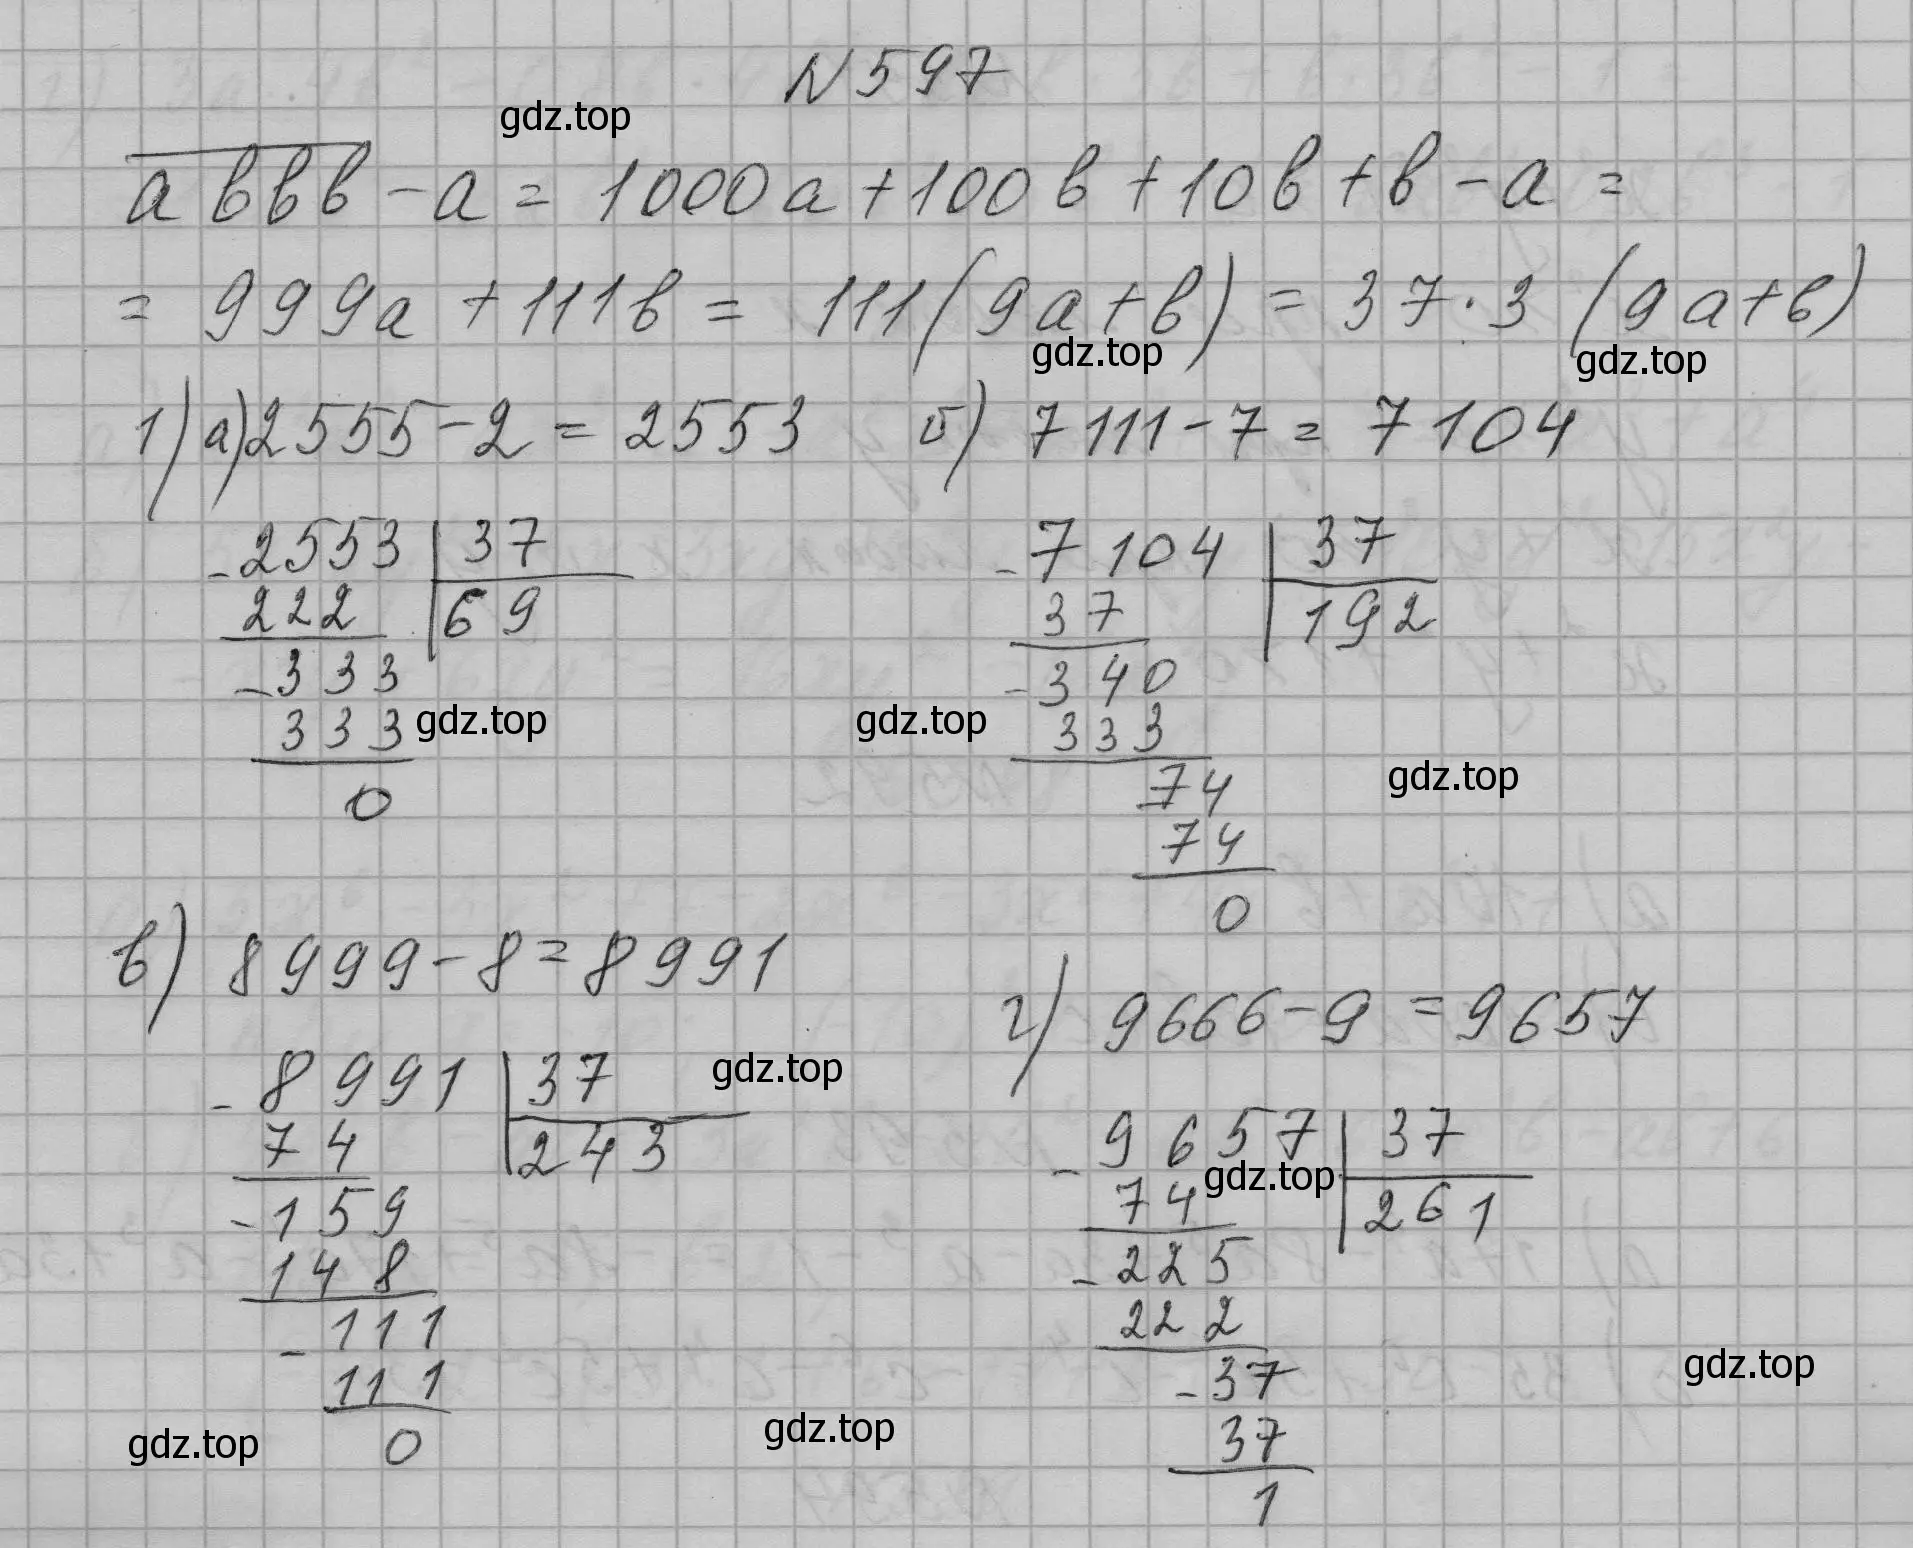 N 597
gdz.top
abbb - a = 1000a + 100b + 10b + b - a =
= 999a + 111b = 111(9a+b) = 37·3 (9a+b)
gdz.top gdz.top
1) а) 2555 - 2 = 2553 б) 7111 - 7 = 7104
- 2553 | 37 - 7104 | 37
222 | 69 37 | 192
- 333 - 340
333 gdz.top gdz.top 333
0 74 gdz.top
74
0
в) 8999 - 8 = 8991
г) 9666 - 9 = 9657
- 8991 | 37 gdz.top
74 | 243 - 9657 | 37
- 159 74 gdz.top | 261
148 - 225
- 111 222
111 - 37 gdz.top
0 37
gdz.top gdz.top
1